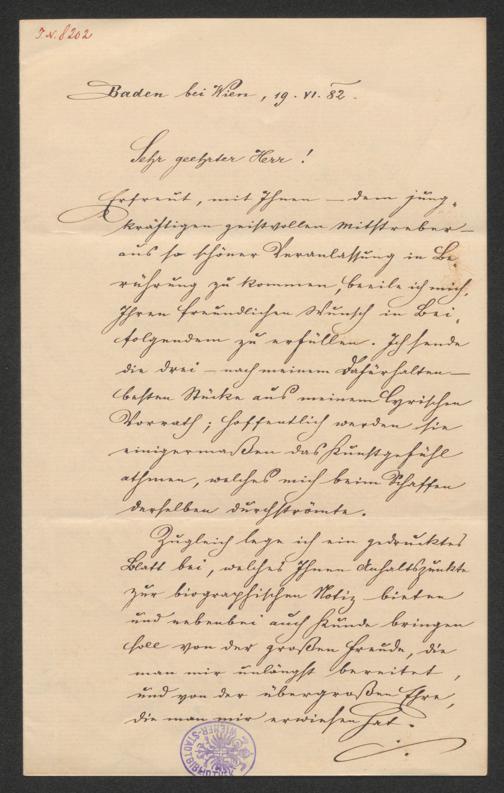 I.N. 8202
Baden bei Wien, 19. VI. 82.
Sehr geehrter Herr!
Erfreut, mit Ihnen – dem jung-
kräftigen geistvollen Mitstreber –
aus so schöner Veranlassung in Be-
rührung zu kommen, beeile ich mich,
Ihren freundlichen Wunsch in Bei-
folgendem zu erfüllen. Ich sende
die drei – nach meinem Dafürhalten –
besten Stücke aus meinem lyrischen
Vorrath; hoffentlich werden sie
einigermaßen das Kunstgefühl
athmen, welches mich beim Schaffen
derselben durchströmte.
Zugleich lege ich ein gedrucktes
Blatt bei, welches Ihnen Anhaltspunkte
zur biographischen Notiz bieten
und nebenbei auch Kunde bringen
soll von der großen Freude, die
man mir unlängst bereitet,
und von der übergroßen Ehre,
die man mir erwiesen hat.
WIENER STADTBIBLIOTHEK